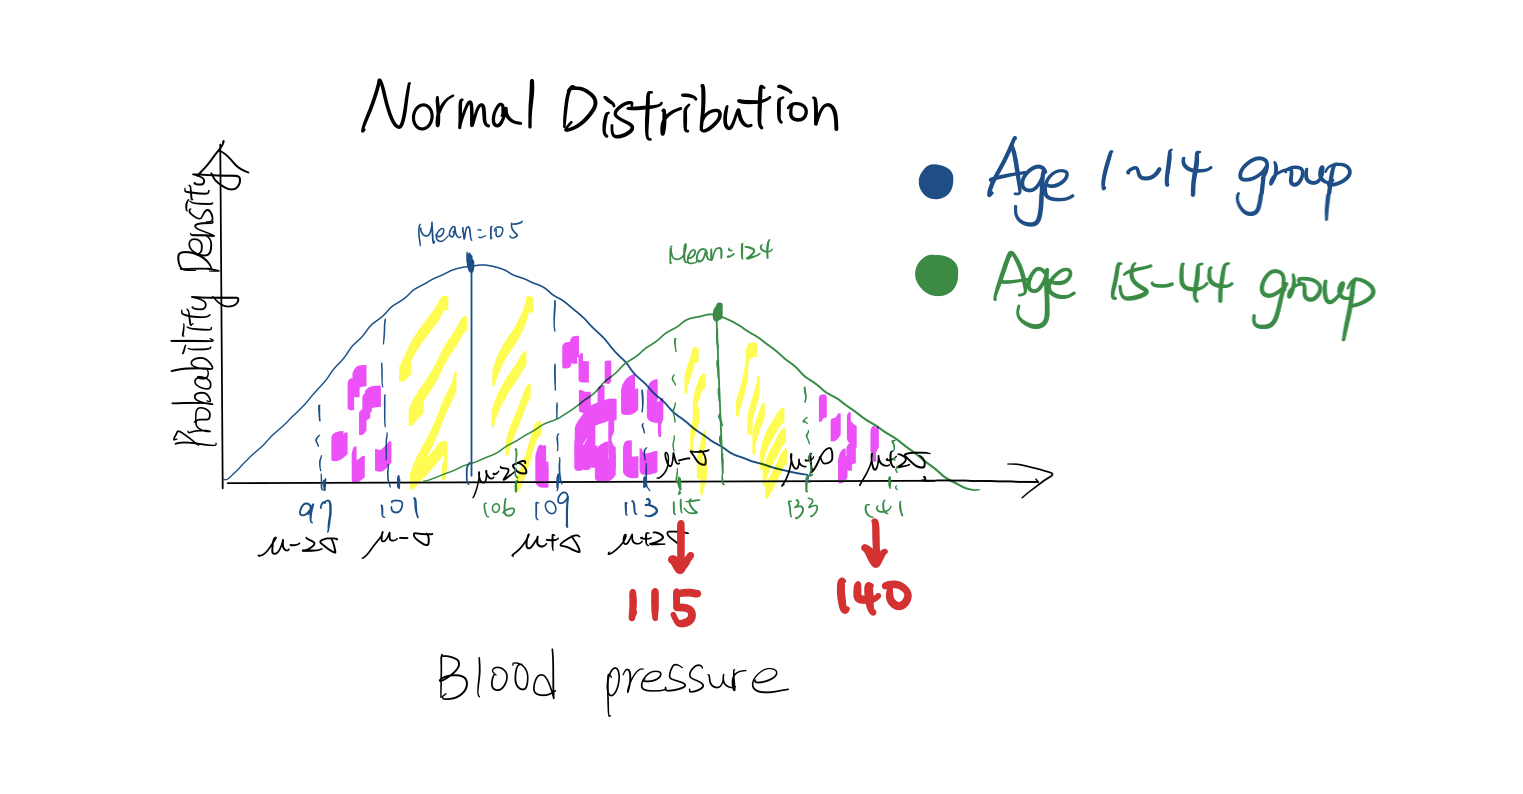 Normal Distribution
Age 1~14 group
Age 15-44 group
Probability Density
Mean=105
Mean=124
μ-2σ
μ-σ
μ+σ
μ+2σ
97
101
106
109
113
115
133
141
μ-2σ
μ-σ
μ+σ
μ+2σ
115
140
Blood pressure